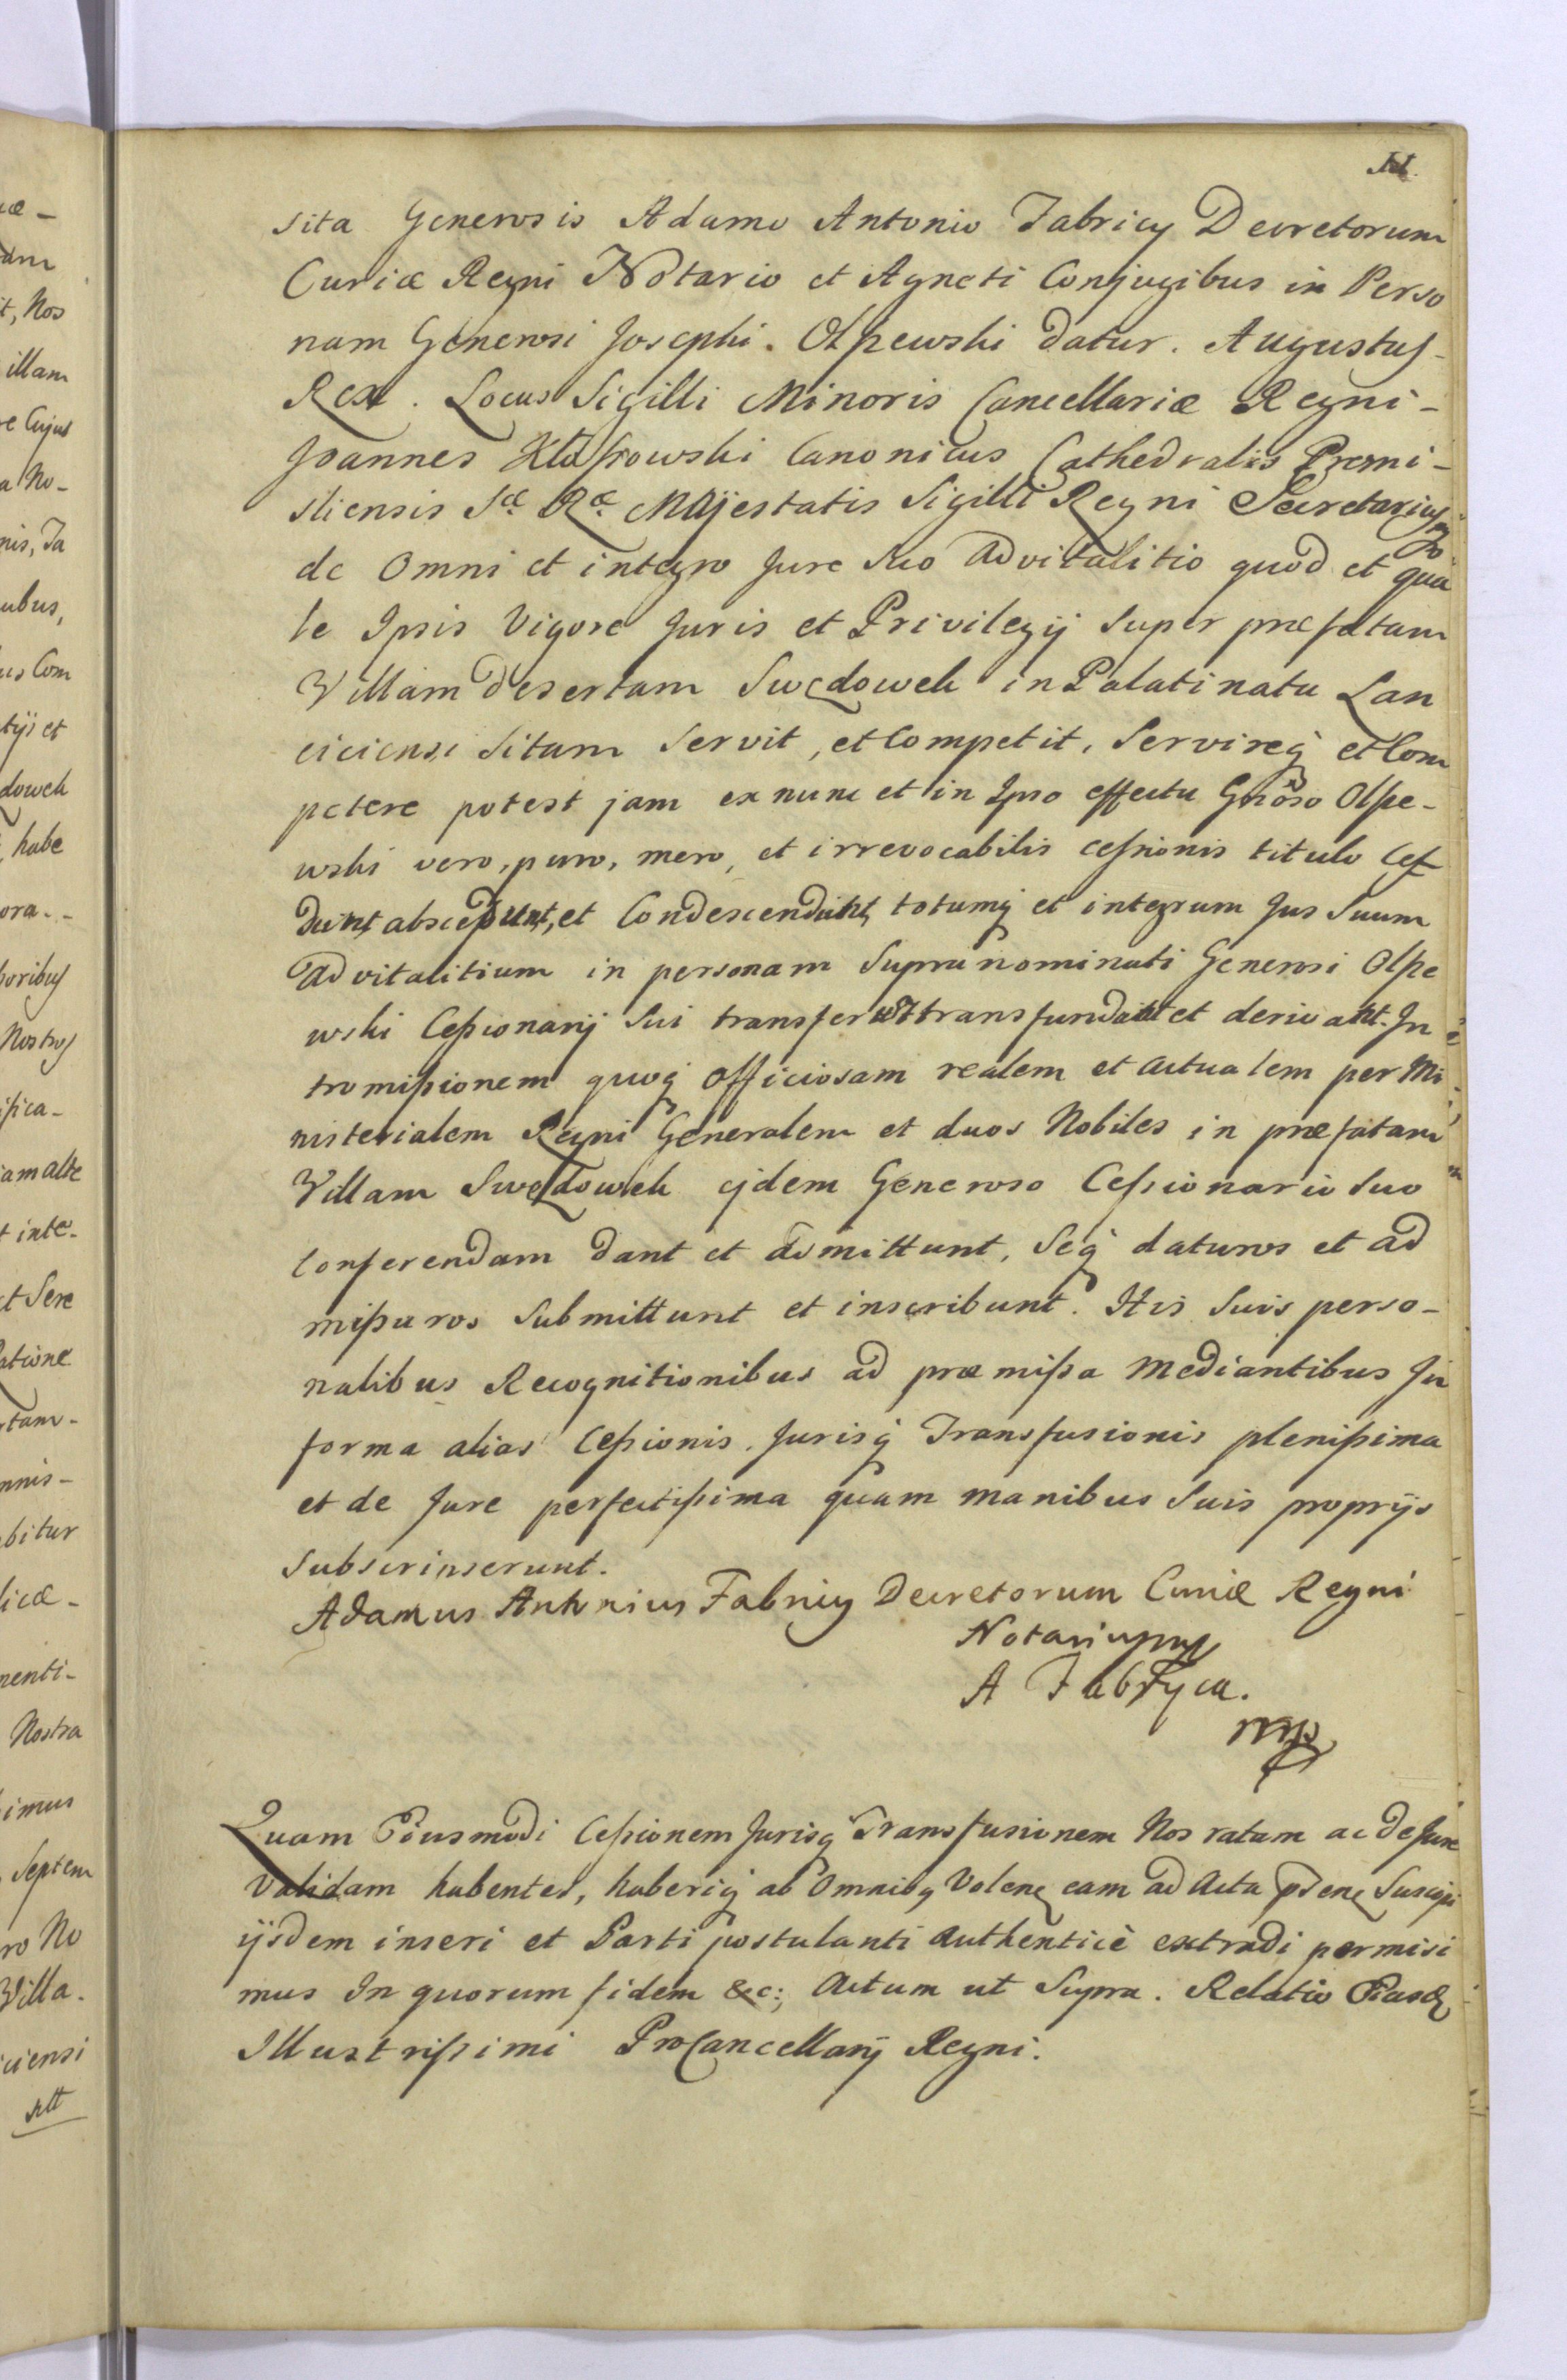 sita Generosis Adamo Antonio Fabricy Decretorum
Curiæ Regni Notario et Agneti Conjugibus in Perso
nam Generosi Josephi. Olszewski datur. Augustus
Rex. Locus Sigilli Minoris Cancellariæ Regni-
Joannes Kłossowski Canonicus Cathedralis Premi-
sliensis Sæ Ræ Majestatis Sigilli Regni Secretarius mp
de Omni et integro Jure Suo Advitalitio quod et qua
le Ipsis Vigore Juris et Privilegij Super præfatam
Villam desertam Swędowek in Palatinatu Lan
ciciensi Sitam Servit, et Competit, Servireq; et Com
petere potest jam ex nunc et in Ipso effectu Gnoso Olsze-
wski vero, puro, mero, et irrevocabilis cessionis titulo Ces
dunt abscedunt, et Condescendunt, totumq; et integrum Jus Suum
Advitalitium in personam Supra nominati Generosi Olsze
wski Cessionarij Sui transferunt transfundunt et derivant. In
tromissionem quoq; Officiosam realem et actualem per Mi
nisterialem Regni Generalem et duos Nobiles in præfatam
Villam Swędowek ejdem Generoso Cessionario Suo
Conferendam dant et admittunt, Seq; daturos et ad
missuros Submittunt et inscribunt. His Suis perso-
nalibus Recognitionibus ad præmissa Mediantibus In
forma alias Cessionis Jurisq; Transfusionis plenissima
et de Jure perfectissima quam manibus Suis proprijs
subscripserunt.
Adamus Antonius Fabricy Decretorum Curiæ Regni
Notarius mp
A Fabryca.
mp
Quam Eiusmodi Cessionem Jurisq; Transfusionem Nos ratam ac de Jure
Validam habentes, haberiq; ab Omnibq Volen; eam ad Acta pden; Suscipi
ijsdem inseri et Parti postulanti authenticè extradi permisi
mus In quorum fidem &c: Actum ut Supra. Relatio Eiusd;
Illustrissimi ProCancellarij Regni.